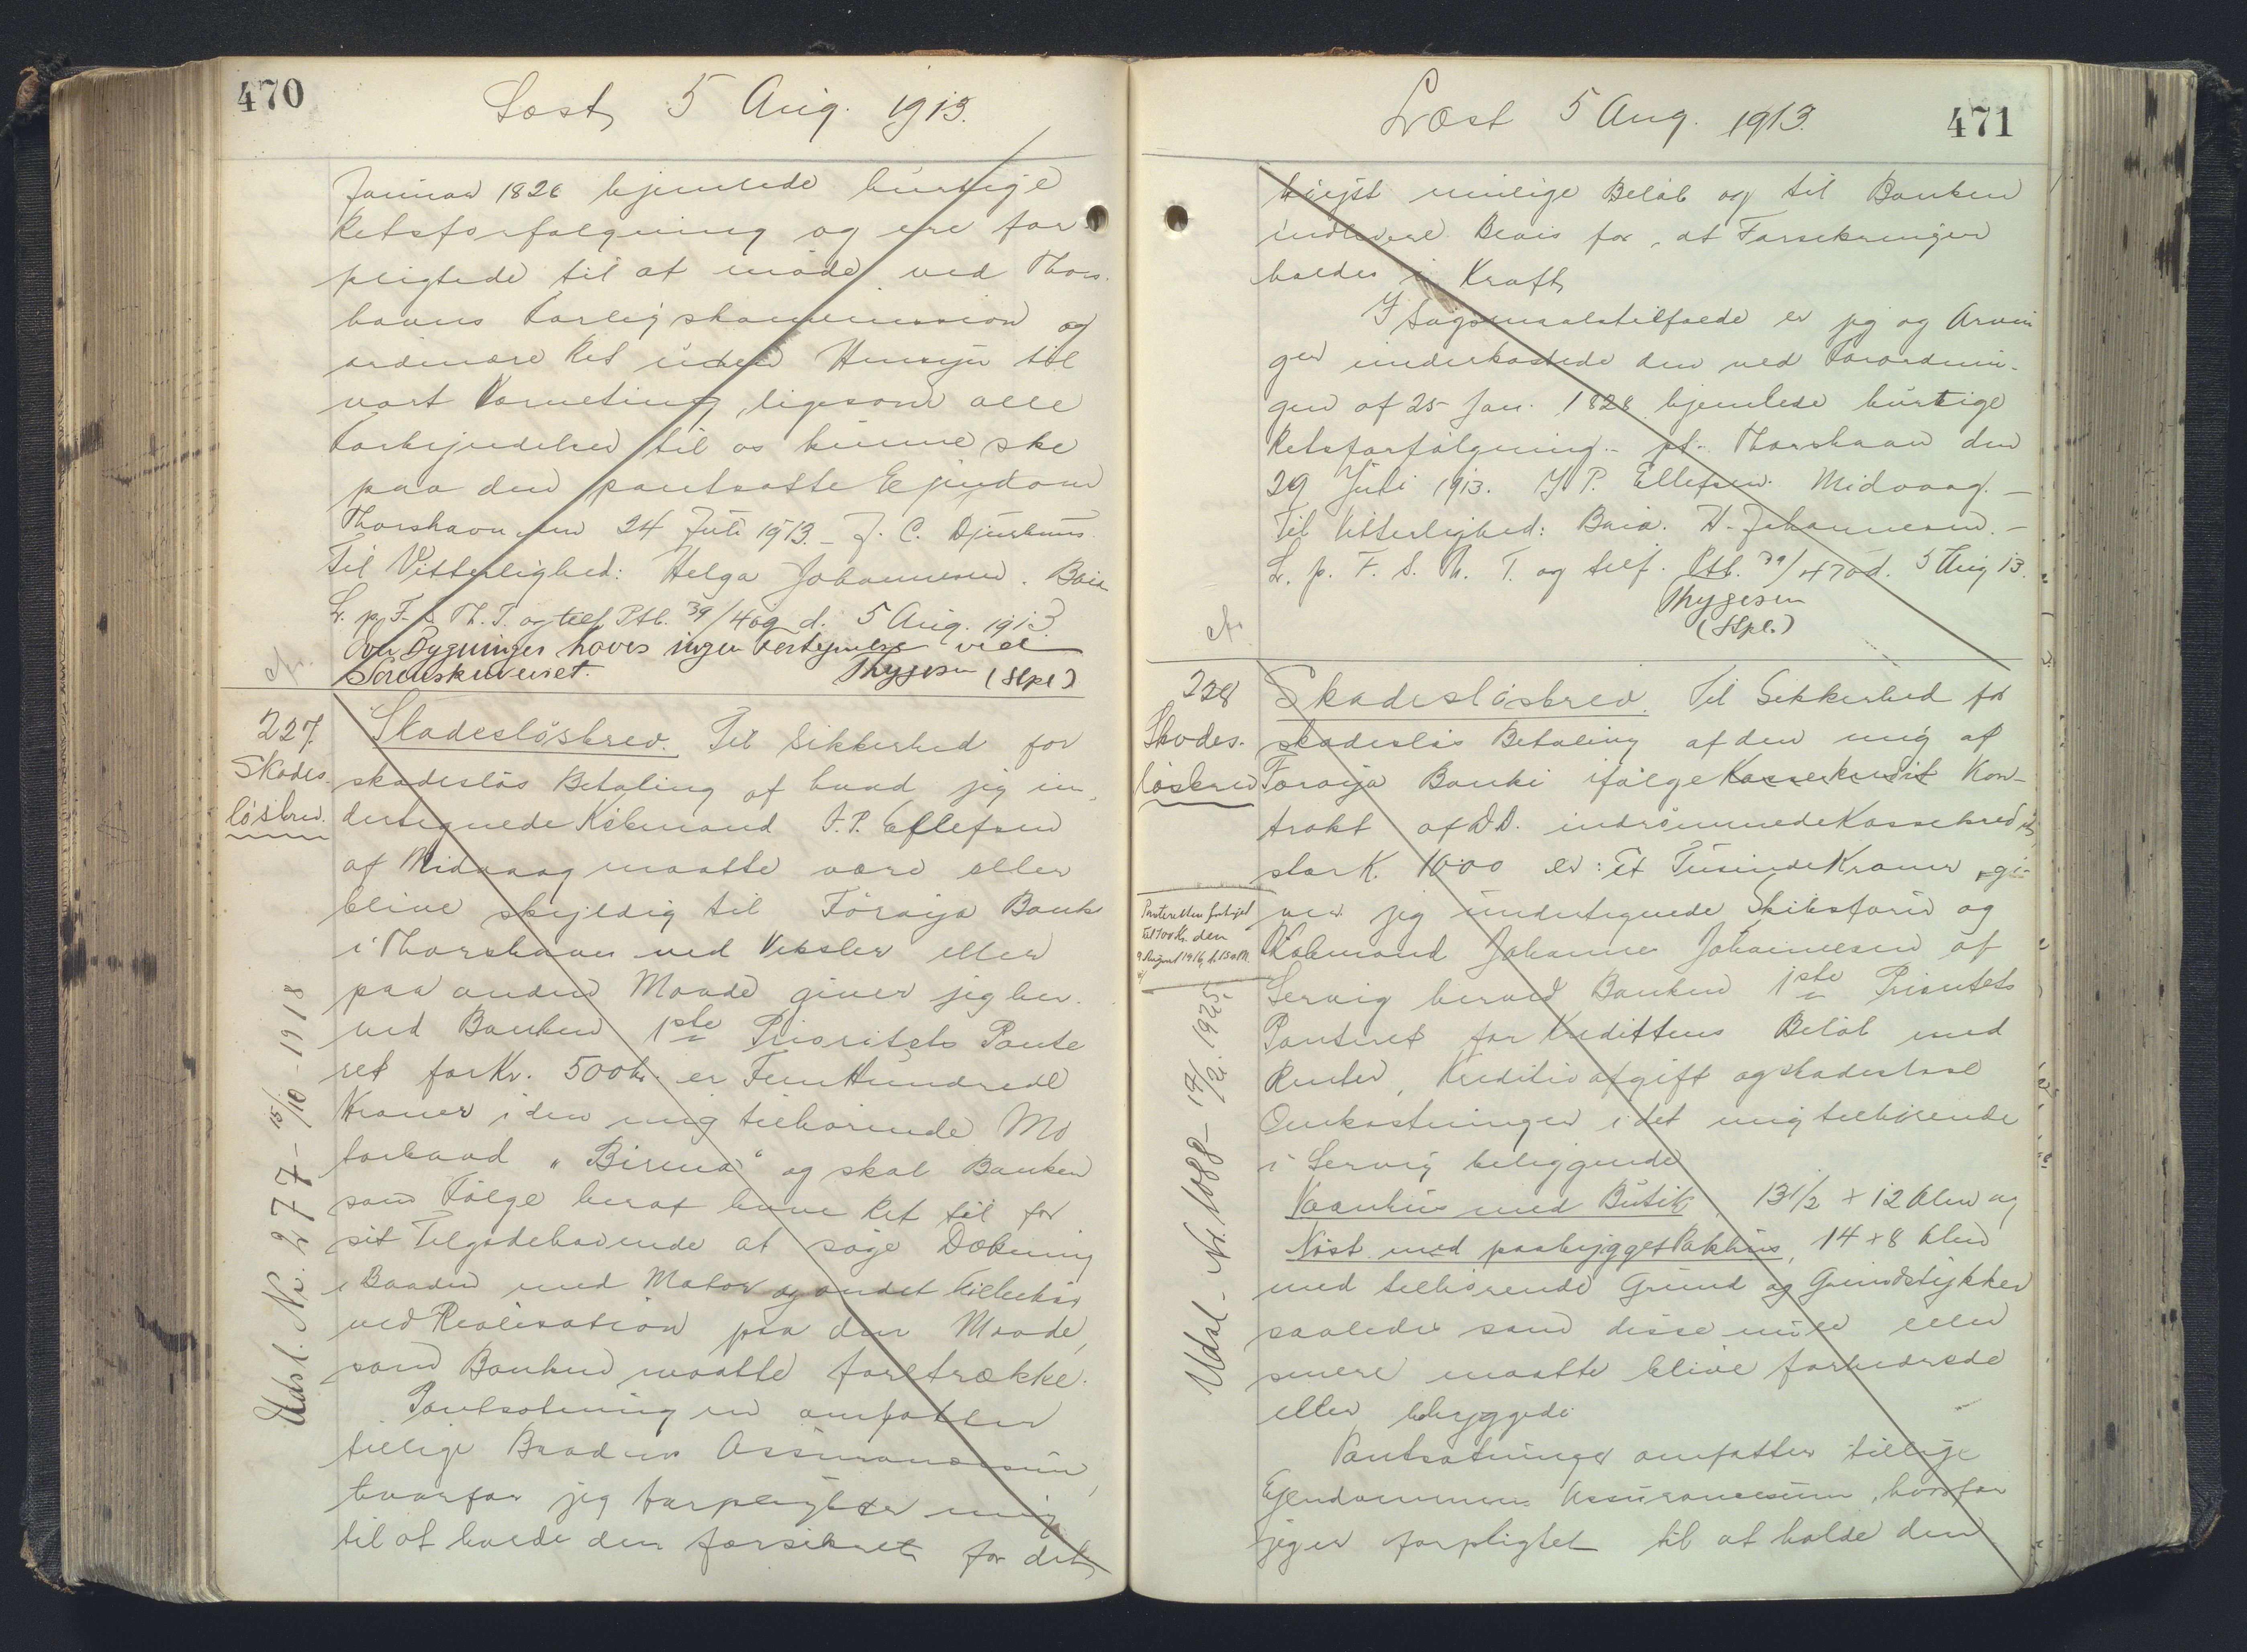 470
Læst 5 Aug. 1913.
Januar 1828 hjemlede hurtige
Retsforfølgning og ere for
pligtede til at møde ved Thors
havns Forligskommission og
ordinære Ret uden Hensyn til
vort Værneting, ligesom alle
Forkyndelser til os kunne ske
paa den pantsatte Ejendom
Thorshavn den 24 Juli 1913. J. C. Djurhuus.
Til Vitterlighed: Helga Johannesen. Baia
L. p. F. S. Th. T. og tilf. Ptb. 39/469 d. 5 Aug. 1913.
Om Bygninger haves ingen Vertegnelse ved
Sorenskriveriet. Thygesen (Stpl)
227.
Skades-
løsbrev.
Skadesløsbrev. Til Sikkerhed for
skadesløs Betaling af hvad jeg un
dertegnede Købmand J. P. Ellefsen
af Midvaag maatte være eller
blive skyldig til Föroya Banki
i Thorshavn ved Veksler eller
paa anden Maade giver jeg her-
ved Banken 1ste Prioritets Pante
ret for Kr. 500 kr. er Fem Hundrede
Kroner i den mig tilhørende Mo
torbaad "Birma" og skal Banken
som Følge heraf have Ret til for
sit Tilgodehavende at søge Dækning
i Baaden med Motor og andet Tilbehør
ved Realisation paa den Maade,
som Banken maatte foretrække.
Pantsætningen omfatter
tillige Baadens Assurancesum,
hvorfor jeg forpligter mig
til at holde den forsikret for det
Udsl. Nr. 277 - 15/10 - 1918
Læst 5 Aug. 1913.
471
højst mulige Beløb og til Banken
indlevere Bevis for, at Forsikringen
holdes i Kraft,
I Søgsmaalstilfælde er jeg og Arvin
ger underkastede den ved Forordnin-
gen af 25 Jan. 1828 hjemlede hurtige
Retsforfølgning. pt. Thorshavn den
29 Juli 1913. J. P. Ellefsen. Midvaag. —
Til Vitterlighed: Baia. H. Johannesen. —
L. p. F. S. Th. T. og tilf. Ptb. 39/470 d. 5 Aug 13.
Thygesen
(Stpl.)
228
Skades-
løsbrev
Skadesløsbrev. Til Sikkerhed for
skadesløs Betaling af den mig af
Foroya Banki ifølge Kassekredit Kon-
trakt af D.D. indrømmede Kassekredit,
stor K. 1000 er: Et Tusinde Kroner, gi-
ver jeg undertegnede Skibsfører og
Købmand Johannes Johannesen af
Servig herved Banken 1ste Prioritets
Panteret for Kredittens Beløb med
Renter, Kreditivafgift og skadesløse
Omkostninger i det mig tilhørende
i Servig beliggende
Vaanhus med Butik, 13 1/2 + 12 Alen og
Nöst med paabygget Pakhus, 14 + 8 Alen
med tilhørende Grund og Grundstykker
saaledes som disse nu er eller
senere maatte blive forbedrede
eller bebyggede
Pantsætningen omfatter tillige
Ejendommens Assurancesum, hvorfor
jeg er forpligtet til at holde den
Panteretten forhøjet
til 700 Kr. den
9 August 1916,
Udsl. Nr. 1088 - 1925